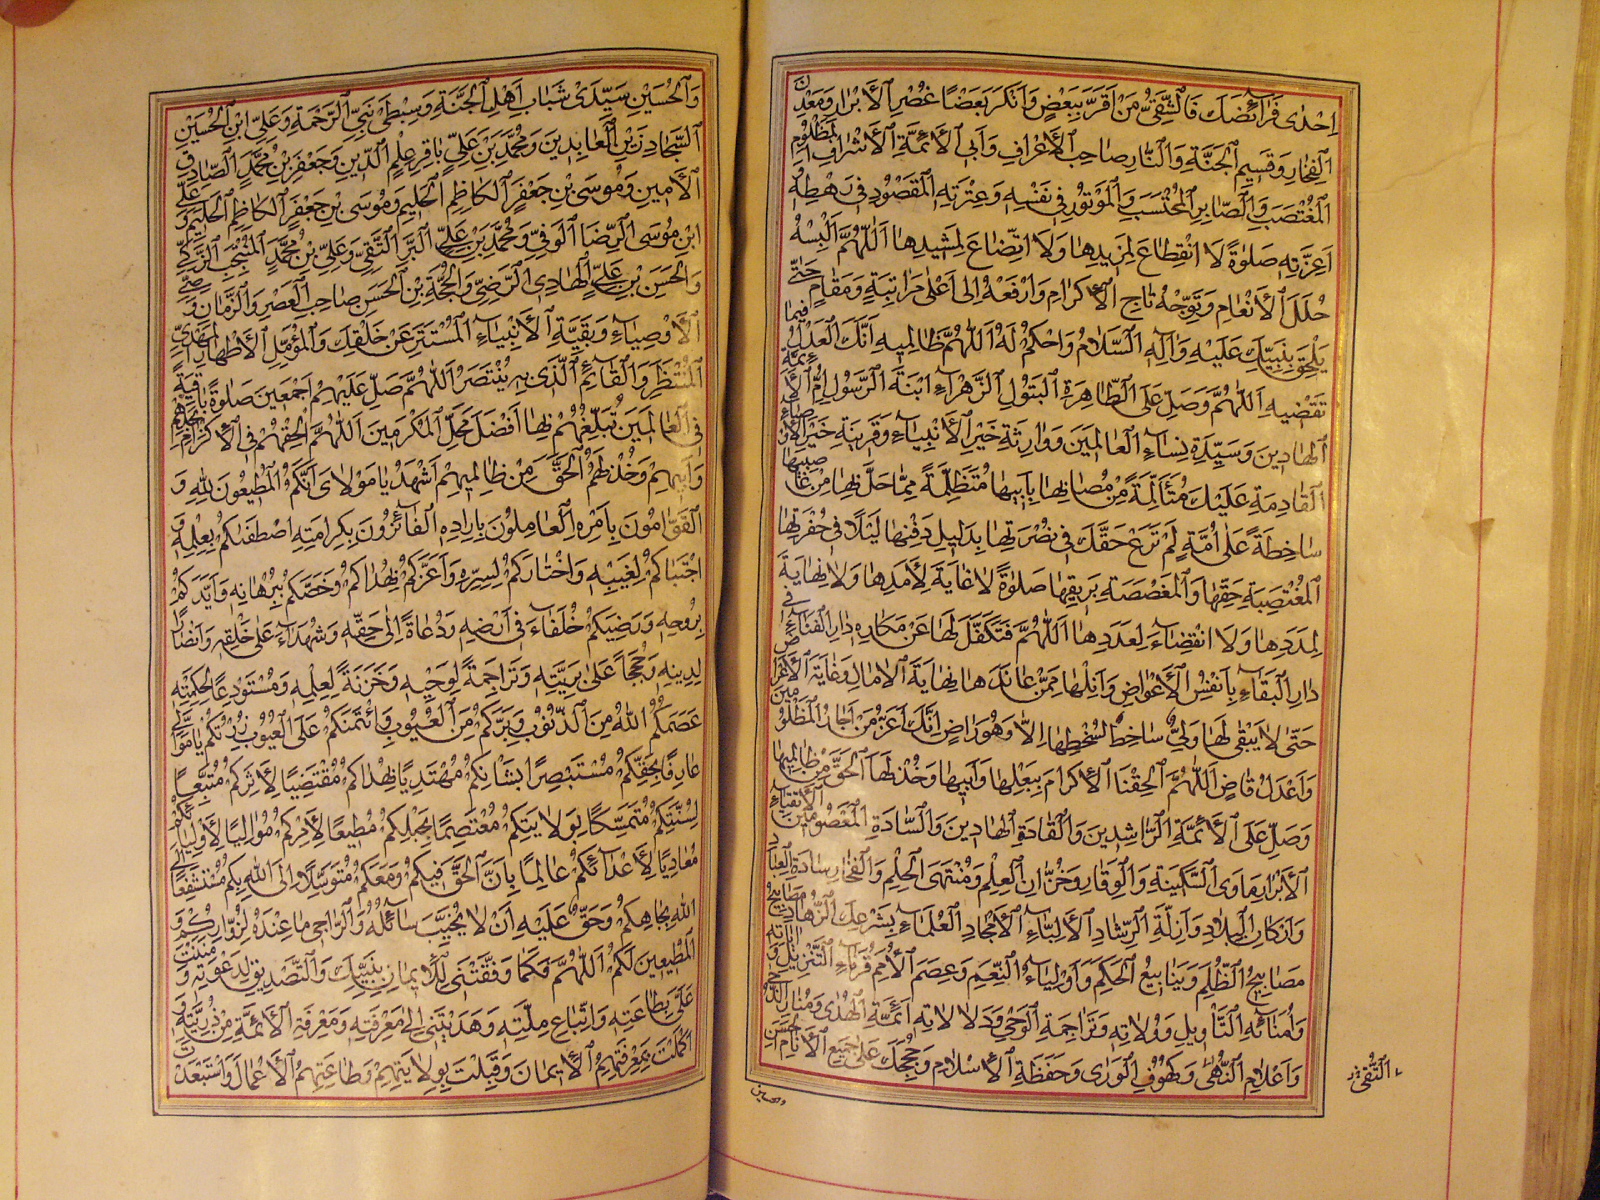 اِحْدٰى فَرَائِضِكَ فَالشَّقِيُّ مَنْ اَقَرَّ بِبَعْضٍ وَاَنْكَرَ بَعْضًا عُنْصُرِ الْاَبْرَارِ وَمَعْدِنِ
الْفِخَارِ وَقَسِيمِ الْجَنَّةِ وَالنَّارِ صَاحِبِ الْاَعْرَافِ وَاَبِي الْاَئِمَّةِ الْاَشْرَافِ الْمَظْلُومِ
الْمُغْتَصَبِ وَالصَّابِرِ الْمُحْتَسِبِ وَالْمَوْتُورِ فِي نَفْسِهِ وَعِتْرَتِهِ الْمَقْصُودِ فِي رَهْطِهِ
اَعِزَّتِهِ صَلٰوةً لَا انْقِطَاعَ لِمَزِيدِهَا وَلَا اتِّضَاعَ لِمَشِيدِهَا اَللّٰهُمَّ اَلْبِسْهُ
حُلَلَ الْاَنْعَامِ وَتَوِّجْهُ تَاجَ الْاَكْرَامِ وَارْفَعْهُ اِلٰى اَعْلٰى مَرَاتِبَةٍ وَمَقَامٍ حَتّٰى
يَلْحَقَ بِنَبِيِّكَ عَلَيْهِ وَآلِهِ السَّلَامُ وَاحْكُمْ لَهُ اَللّٰهُمَّ ظَالِمِيهِ اِنَّكَ الْعَدْلُ فِيمَا
تَقْضِيهِ اَللّٰهُمَّ وَصَلِّ عَلَى الطَّاهِرَةِ الْبَتُولِ الزَّهْرَاءِ ابْنَةِ الرَّسُولِ اُمِّ الْاَئِمَّةِ
الْهَادِينَ وَسَيِّدَةِ نِسَاءِ الْعَالَمِينَ وَوَارِثَةِ خَيْرِ الْاَنْبِيَاءِ وَقَرِينَةِ خَيْرِ الْاَوْصِيَاءِ
الْقَادِمَةِ عَلَيْكَ مُتَاَلِّمَةً مِنْ مُصَابِهَا بِاَبِيهَا مُتَظَلِّمَةً مِمَّا حَلَّ بِهَا مِنْ غَاصِبِيهَا
سَاخِطَةً عَلٰى اُمَّةٍ لَمْ تَرْعَ حَقَّكَ فِي نُصْرَتِهَا بِدَلِيلِ دَفْنِهَا لَيْلًا فِي حُفْرَتِهَا
الْمُغْتَصَبَةِ حَقَّهَا وَالْمُغَصَّصَةِ بِرِيقِهَا صَلٰوةً لَا غَايَةَ لِاَمَدِهَا وَلَا نِهَايَةَ
لِمَدَدِهَا وَلَا انْقِضَاءَ لِعَدَدِهَا اَللّٰهُمَّ فَتَكَفَّلْ لَهَا عَنْ مَكَارِهِ دَارِ الْفَنَاءِ فِي
دَارِ الْبَقَاءِ بِاَنْفَسِ الْاَعْوَاضِ وَاَنِلْهَا مِمَّنْ عَانَدَهَا نِهَايَةَ الْاٰمَالِ وَغَايَةَ الْاَغْرَاضِ
حَتّٰى لَا يَبْقٰى لَهَا وَلِيٌّ سَاخِطٌ لِسُخْطِهَا اِلَّا وَهُوَ رَاضٍ اِنَّكَ اَعَزُّ مَنْ اَجَارَ الْمَظْلُومِينَ
وَاَعْدَلُ قَاضٍ اَللّٰهُمَّ اَلْحِقْنَا الْاَكْرَامَ بِبَعْلِهَا وَاَبِيهَا وَخُذْ لَهَا الْحَقَّ مِنْ ظَالِمِيهَا
وَصَلِّ عَلَى الْاَئِمَّةِ الرَّاشِدِينَ وَالْقَادَةِ الْهَادِينَ وَالسَّادَةِ الْمَعْصُومِينَ الْاَتْقِيَاءِ
الْاَبْرَارِ مَاْوَى السَّكِينَةِ وَالْوَقَارِ وَخُزَّانِ الْعِلْمِ وَمُنْتَهَى الْحِلْمِ وَالْفَخَارِ سَادَةِ الْعِبَادِ
وَاَرْكَانِ الْبِلَادِ وَاَدِلَّةِ الرَّشَادِ الْاَلِبَّاءِ الْاَمْجَادِ الْعُلَمَاءِ بِشَرْعِكَ الزُّهَّادِ
مَصَابِيحِ الظُّلَمِ وَيَنَابِيعِ الْحِكَمِ وَاَوْلِيَاءِ النِّعَمِ وَعِصَمِ الْاُمَمِ قُرَنَاءِ التَّنْزِيلِ وَ
وَاُمَنَائِهِ التَّاْوِيلِ وَوُلَاتِهِ وَتَرَاجِمَةِ الْوَحْيِ وَدَلَالَاتِهِ اَئِمَّةِ الْهُدٰى وَمَنَارِ الدُّجٰى
وَاَعْلَامِ النُّهٰى وَكُهُوفِ الْوَرٰى وَحَفَظَةِ الْاِسْلَامِ وَحُجَجِكَ عَلٰى جَمِيعِ الْاَنَامِ الْحَسَنِ
التَّقِيّ
والحسين
وَالْحُسَيْنِ سَيِّدَيْ شَبَابِ اَهْلِ الْجَنَّةِ وَسِبْطَيْ نَبِيِّ الرَّحْمَةِ وَعَلِيِّ ابْنِ الْحُسَيْنِ
السَّجَّادِ زَيْنِ الْعَابِدِينَ وَمُحَمَّدِ بْنِ عَلِيٍّ بَاقِرِ عِلْمِ الدِّينِ وَجَعْفَرِ بْنِ مُحَمَّدٍ الصَّادِقِ
الْاَمِينِ وَمُوسَى بْنِ جَعْفَرٍ الْكَاظِمِ الْحَلِيمِ وَمُوسَى بْنِ جَعْفَرٍ الْكَاظِمِ الْحَلِيمِ وَعَلِيِّ
ابْنِ مُوسَى الرِّضَا الْوَفِيِّ وَمُحَمَّدِ بْنِ عَلِيٍّ الْبَرِّ التَّقِيِّ وَعَلِيِّ بْنِ مُحَمَّدٍ الْمُنْتَجَبِ الزَّكِيِّ
وَالْحَسَنِ بْنِ عَلِيٍّ الْهَادِي الرَّضِيِّ وَالْحُجَّةِ بْنِ الْحَسَنِ صَاحِبِ الْعَصْرِ وَالزَّمَانِ وَصِيِّ
الْاَوْصِيَاءِ وَبَقِيَّةِ الْاَنْبِيَاءِ الْمُسْتَتِرِ عَنْ خَلْقِكَ وَالْمُؤَمَّلِ لِاَظْهَارِ الْمَهْدِيِّ
الْمُنْتَظَرِ وَالْقَائِمِ الَّذِي بِهِ يُنْتَصَرُ اَللّٰهُمَّ صَلِّ عَلَيْهِمْ اَجْمَعِينَ صَلٰوةً بَاقِيَةً
فِي الْعَالَمِينَ تُبَلِّغُهُمْ بِهَا اَفْضَلَ مَحَلِّ الْمُكْرَمِينَ اَللّٰهُمَّ الْحِقْهُمْ فِي الْاَكْرَامِ بِجَدِّهِمْ
وَاَبِيهِمْ وَخُذْ لَهُمُ الْحَقَّ مِنْ ظَالِمِيهِمْ اَشْهَدُ يَا مَوْلَايَ اَنَّكُمْ الْمُطِيعُونَ لِلّٰهِ وَ
الْقَوَّامُونَ بِاَمْرِهِ الْعَامِلُونَ بِاِرَادِهِ الْفَائِزُونَ بِكَرَامَتِهِ اصْطَفٰىكُمْ بِعِلْمِهِ وَ
اجْتَبَاكُمْ لِغَيْبِهِ وَاخْتَارَكُمْ لِسِرِّهِ وَاَعَزَّكُمْ بِهُدَاكُمْ وَخَصَّكُمْ بِبُرْهَانِهِ وَاَيَّدَكُمْ
بِرُوحِهِ وَرَضِيَكُمْ خُلَفَاءَ فِي اَرْضِهِ وَدُعَاةً اِلٰى حَقِّهِ وَشُهَدَاءَ عَلٰى خَلْقِهِ وَاَنْصَارًا
لِدِينِهِ وَحُجَجًا عَلٰى بَرِيَّتِهِ وَتَرَاجِمَةً لِوَحْيِهِ وَخَزَنَةً لِعِلْمِهِ وَمُسْتَوْدِعًا لِحِكْمَتِهِ
عَصَمَكُمُ اللّٰهُ مِنَ الذُّنُوبِ وَبَرَّئَكُمْ مِنَ الْعُيُوبِ وَائْتَمَنَكُمْ عَلَى الْغُيُوبِ زُرْتُكُمْ يَا مَوَالِيَّ
عَارِفًا بِحَقِّكُمْ مُسْتَبْصِرًا بِشَاْنِكُمْ مُهْتَدِيًا بِهُدَاكُمْ مُقْتَفِيًا لِاَثَرِكُمْ مُتَّبِعًا
لِسُنَّتِكُمْ مُتَمَسِّكًا بِوِلَايَتِكُمْ مُعْتَصِمًا بِحَبْلِكُمْ مُطِيعًا لِاَمْرِكُمْ مُوَالِيًا لِاَوْلِيَائِكُمْ
مُعَادِيًا لِاَعْدَائِكُمْ عَالِمًا بِاَنَّ الْحَقَّ فِيكُمْ وَمَعَكُمْ مُتَوَسِّلًا اِلَى اللّٰهِ بِكُمْ مُسْتَشْفِعًا
اللّٰهَ بِجَاهِكُمْ وَحَقٌّ عَلَيْهِ اَنْ لَا يُخَيِّبَ سَائِلَهُ وَالرَّاجِيَ مَا عِنْدَهُ لِزُوَّارِكُمْ وَ
الْمُطِيعِينَ لَكُمْ اَللّٰهُمَّ فَكَمَا وَفَّقْتَنِي لِلْاِيمَانِ بِنَبِيِّكَ وَالتَّصْدِيقِ لِدَعْوَتِهِ وَمَنَنْتَ
عَلَيَّ بِطَاعَتِهِ وَاتِّبَاعِ مِلَّتِهِ وَهَدَيْتَنِي اِلٰى مَعْرِفَتِهِ وَمَعْرِفَةِ الْاَئِمَّةِ مِنْ ذُرِّيَّتِهِ وَ
اَكْمَلْتَ بِمَعْرِفَتِهِمُ الْاِيمَانَ وَقَبِلْتَ بِوِلَايَتِهِمْ وَطَاعَتِهِمُ الْاَعْمَالَ وَاسْتَعْبَدْتَ